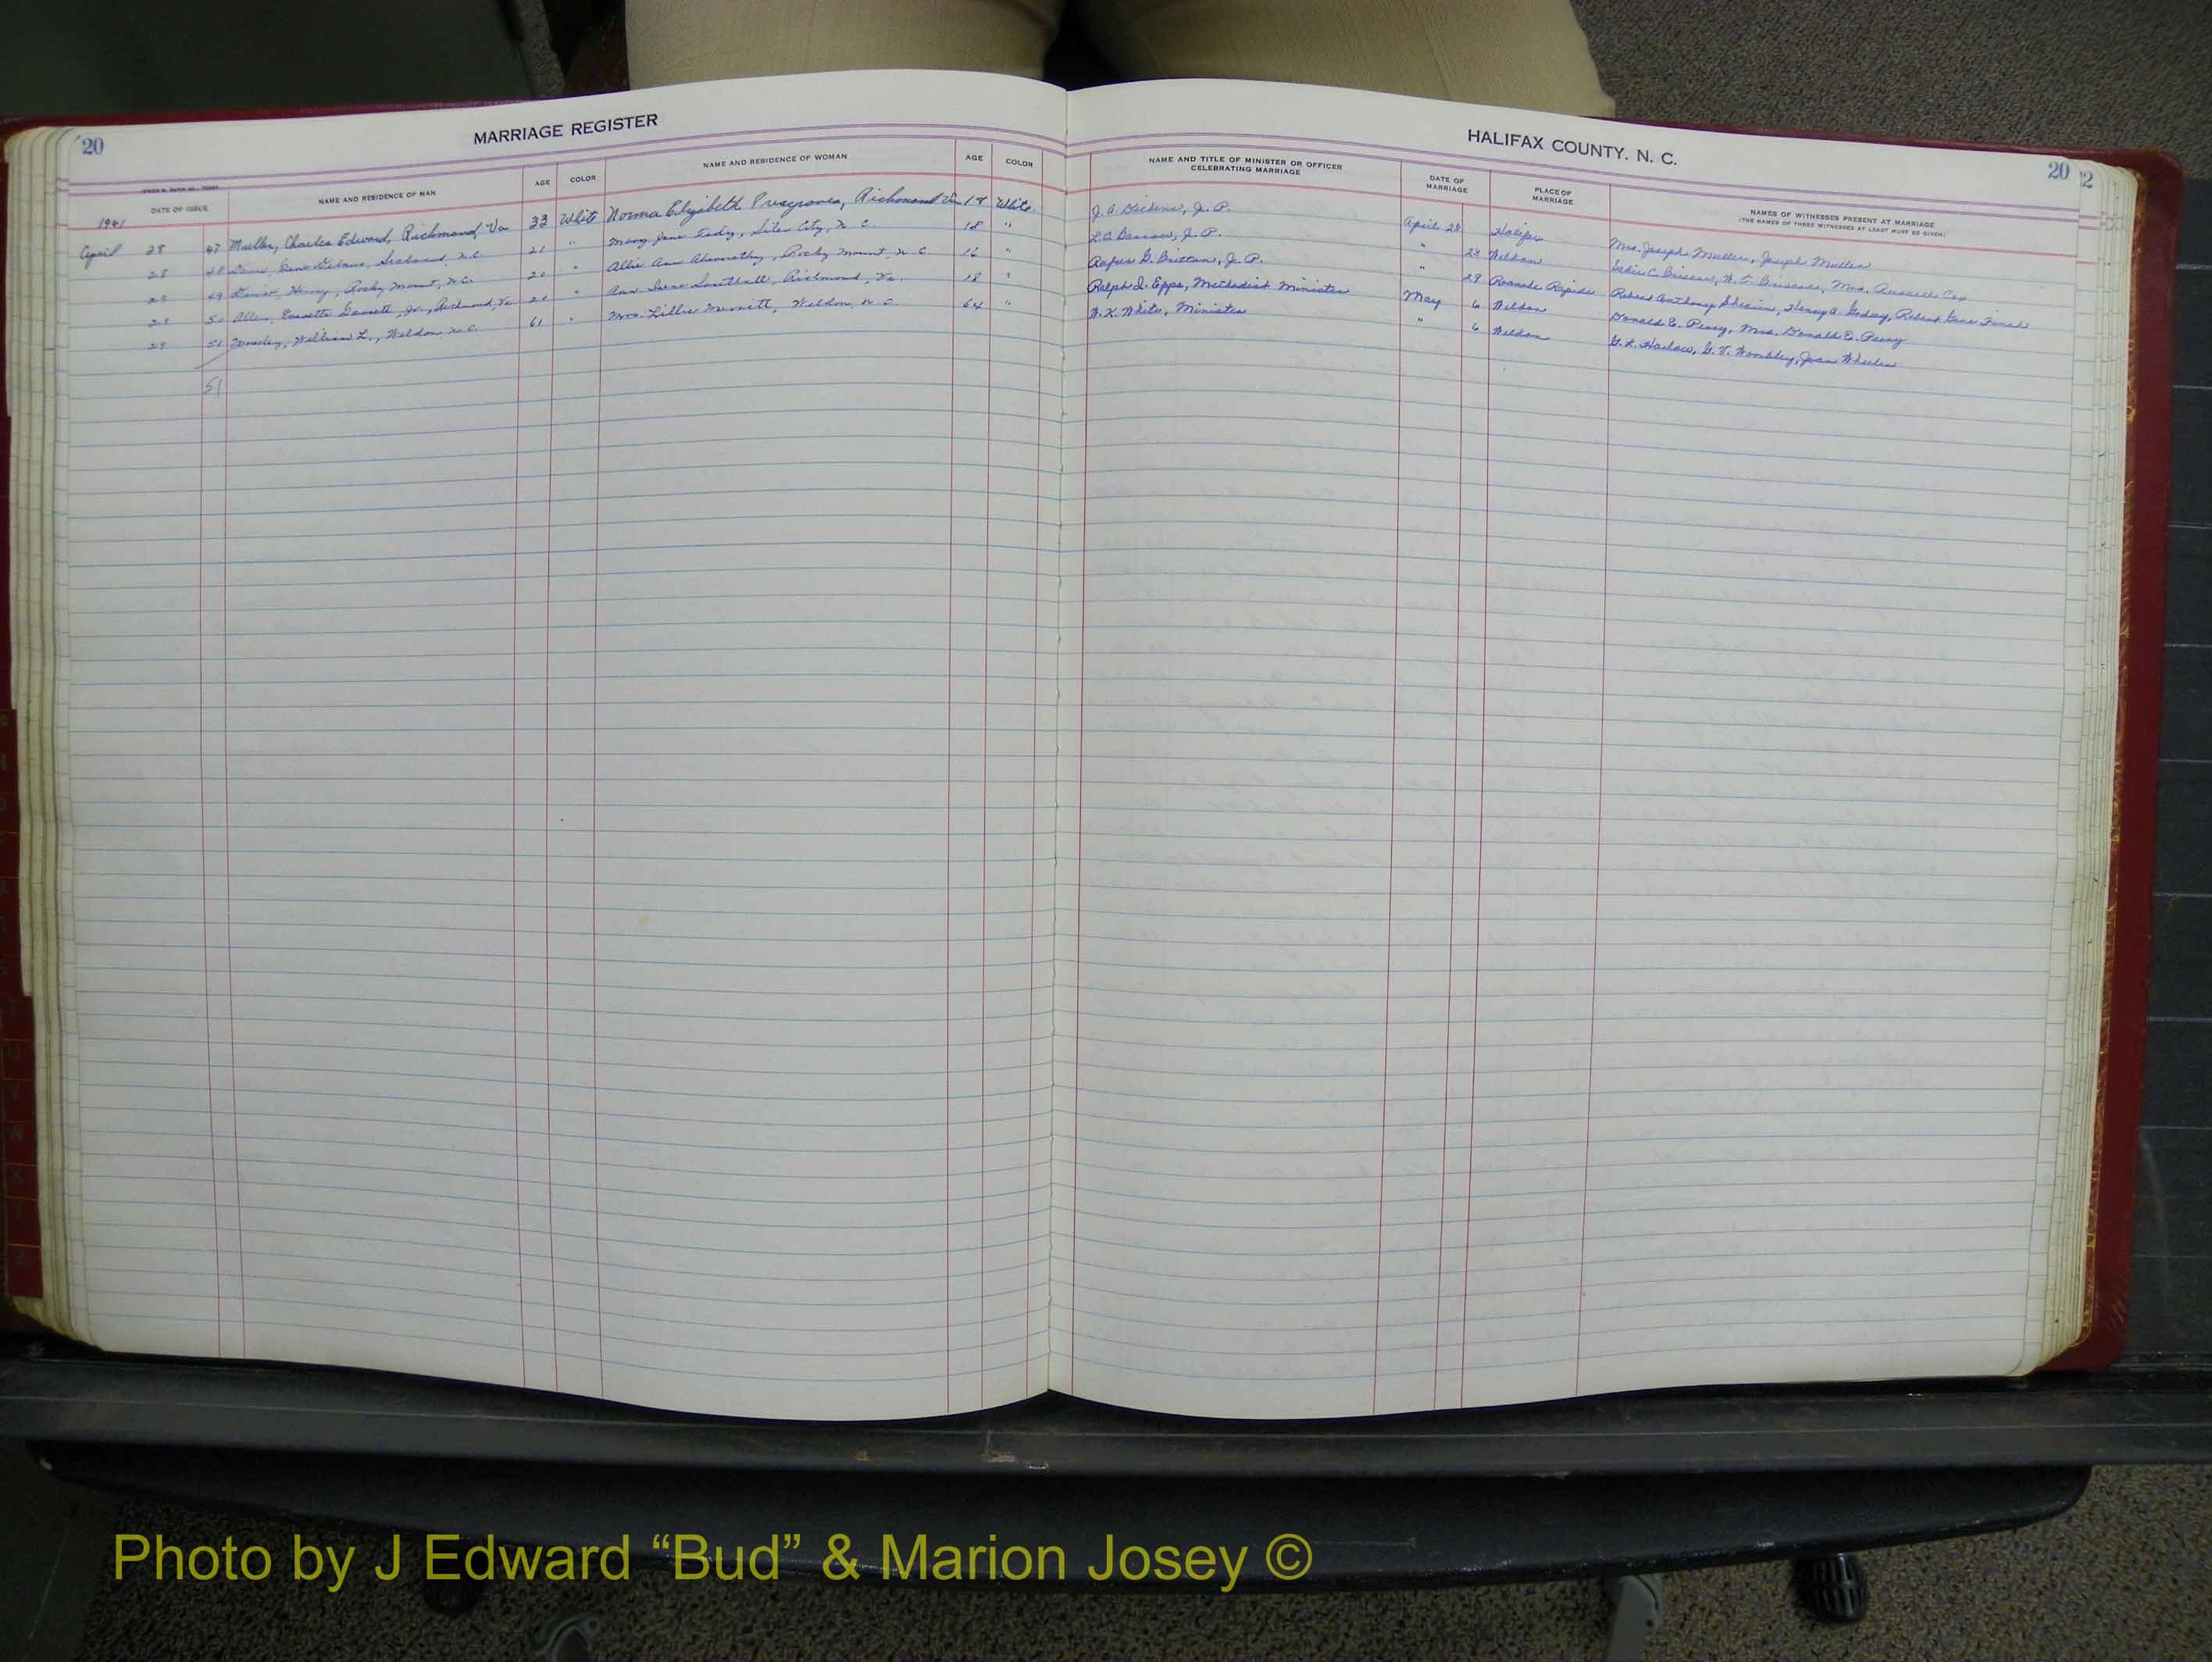 20
MARRIAGE REGISTER
HALIFAX COUNTY, N. C.
20
22
DATE OF ISSUE NAME AND RESIDENCE OF MAN AGE COLOR NAME AND RESIDENCE OF WOMAN AGE COLOR
NAME AND TITLE OF MINISTER OR OFFICER CELEBRATING MARRIAGE DATE OF MARRIAGE PLACE OF MARRIAGE NAMES OF WITNESSES PRESENT AT MARRIAGE
(THE NAMES OF THREE WITNESSES AT LEAST MUST BE GIVEN)
1941
April 28 47 Muller, Charles Edward, Richmond, Va 33 White Norma Elizabeth Richmond Va White
28 48 N.C. 21 " Mary Jane Siler City, N. C. 18 "
49 Henry, Rocky Mount, N.C. 20 " Allie Ann Abernathy, Rocky Mount, N. C. 16 "
29 50 Garnett, Jr., Richmond, Va 20 " Ann Southall, Richmond, Va. 18 "
29 51 William L., Weldon, N.C. 61 " Mrs. Lillie Merritt, Weldon, N. C. 64 "
51
J. A. Dickens, J. P. April 28 Halifax Mrs. Joseph Muller, Joseph Muller
L.C. J. P. " 28 Weldon Mrs. Russell Cox
Rufus G. Britton, J. P. " 29 Roanoke Rapids Robert Anthony Henry A. Robert Gene
Ralph I. Epps, Methodist Minister May 6 Weldon Donald E. Perry, Mrs. Donald E. Perry
W. K. White, Minister " 6 Weldon G. L. Harlow, G. V. Joan Wheeler
Photo by J Edward “Bud” & Marion Josey ©